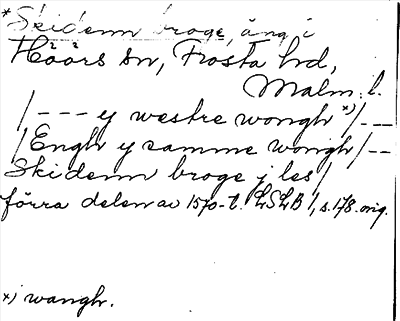 *Skidenn broge, äng i
Höörs sn, Frosta hd,
Malm. l.
/--- y westre wongh *)/---
/Engh y samme wongh/--
Skidenn broge j les/
förra delen av 1570-t. LSLB 1, s. 178. orig.
*) wangh.